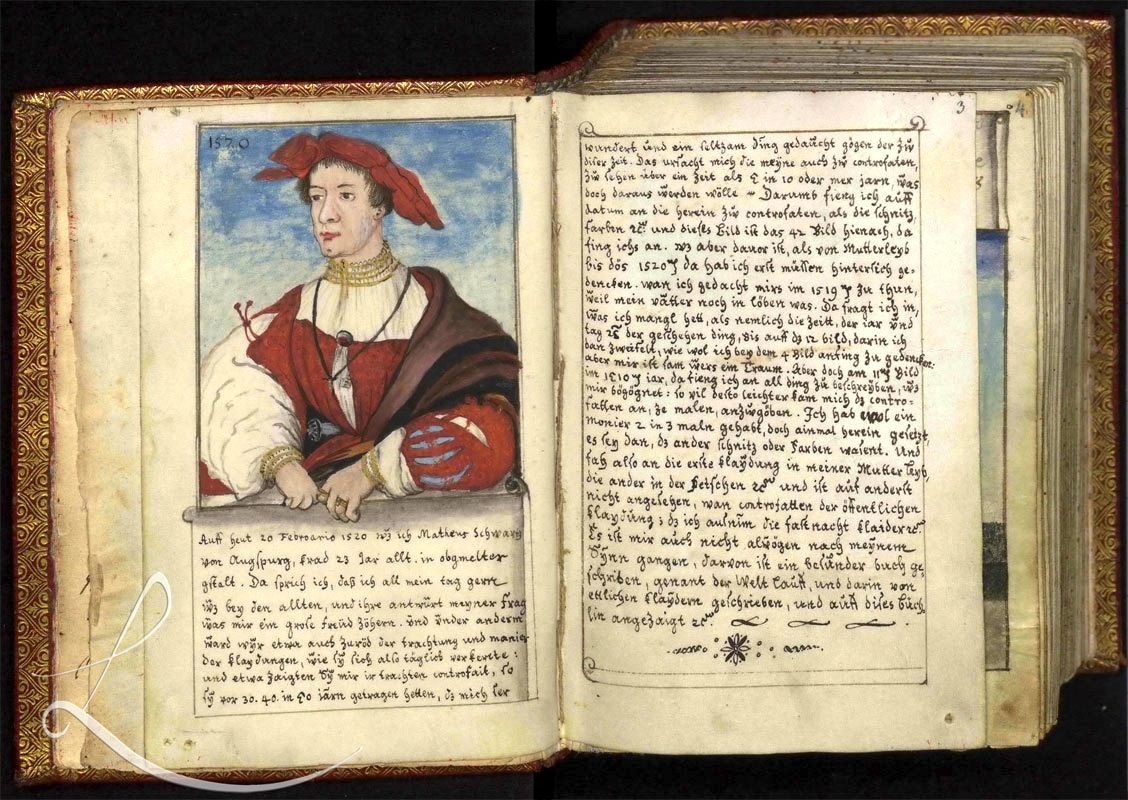 1520
Auff heut 20 Febroario 1520 wz ich Matheus Schwartz
von Augspurg, krad 23 Jar allt. in obgmelter
gstalt. Da sprich ich, daß ich all mein tag gern
wz bey den allten, und ihre antwürt meyner frag
was mir ein große freüd zöhern. Und ünder anderm
ward wyr etwa auch zuröd der trachtung und manier
der klaydungen, wie sy sich also täglich verkerte:
und etwa zaigten Sy mir ir trachten controfait, so
sy vor 30. 40. in 50 jarn getragen hetten, dz mich ser
3
4
wundert und ein seltzam ding gedaucht gögen der zw
diser zeit. Das ursacht mich die meyne auch zw controfaten,
zw sehen über ein zeit als 5 in 10 oder mer jarn, was
doch daraus werden wölle ~ Darumb fieng ich auff
datum an die herein zw controfaten, als die schnitz,
farben und dieses Bild ist das 42 Bild hienach, da
fing ichs an. wz aber davor ist, als von Mutterleyb
bis dös 1520 da hab ich erst müssen hintersich ge-
dencken. wan ich gedacht mirs im 1519 zu thun,
weil mein vätter noch in löben was. Da fragt ich in,
was ich mangl hett, als nemlich die zeitt, der iar und
tag der geschehen ding, bis auff dz 12 bild, darin ich
dan zweifelt, wie wol ich bey dem 4 Bild anfing zu gedencken:
aber mir ist sam wers ein Traum. Aber doch am 11 Bild
im 1510 jar, da fieng ich an all ding zu beschreyben, wz
mir bögögnet: so vil desto leichter kam mich dz contro-
fatten an, ze malen, anzuwgöben. Ich hab wol ein
monier 2 in 3 maln gehabt, doch ainmal herein gesetzt,
es sey dan, dz ander schnitz oder farben wasent. Und
sach also an die erste klaydung in meiner Mutter leyb,
die ander in der Fetschen und ist auf anderst
nicht angesehen, wan controfatten der öffentlichen
klaydung; dz ich ausnim die fastnacht klaider
Es ist mir auch nicht alwögen nach meynem
Synn gangen, darvon ist ein besünder buch ge-
schriben, genant der Welt Lauff, und darin von
ettlichen klaydern geschrieben, und auff dises büch
lin angezaigt